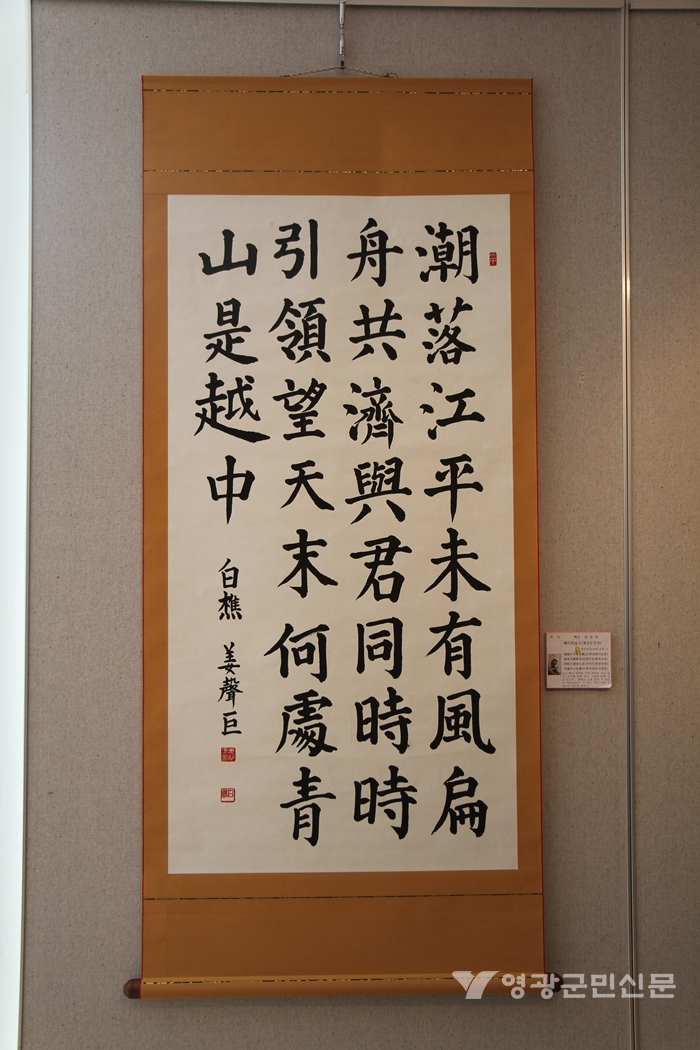 潮落江平未有風扁
舟共濟與君同時時
引領望天末何處青
山是越中
白樵 姜聲巨
영광군민신문